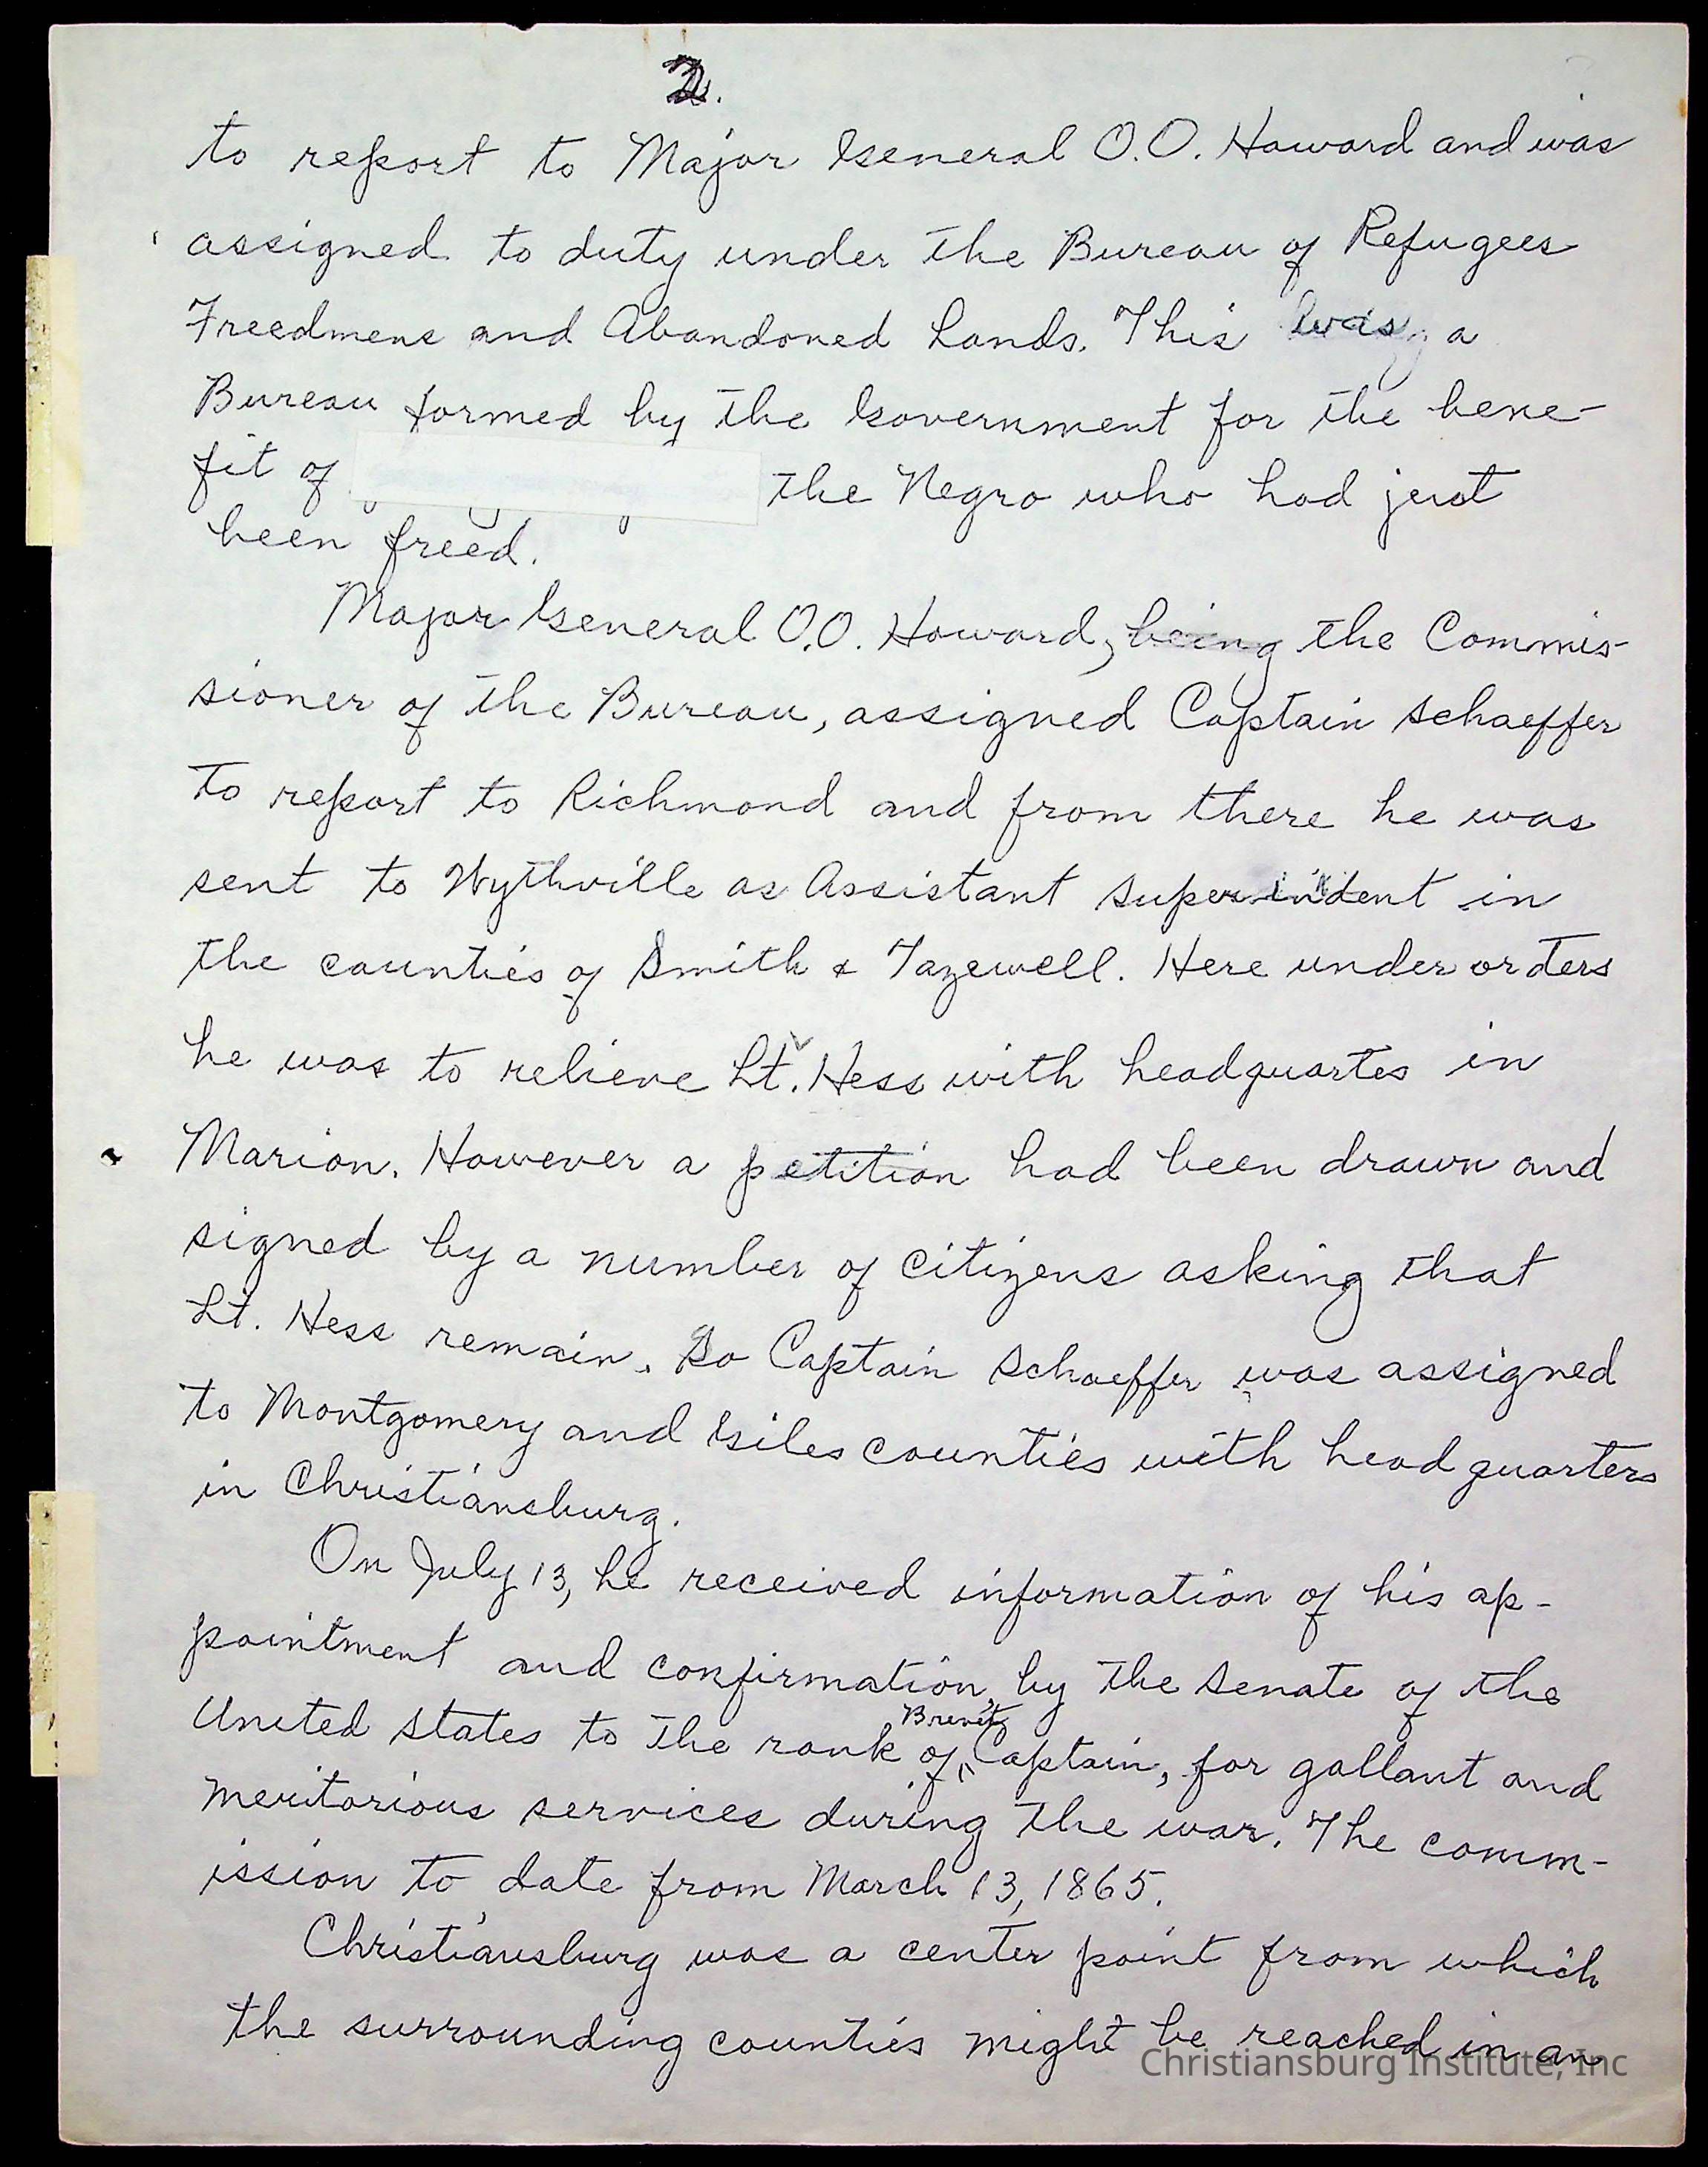 2.
to report to Major General O.O. Howard and was
assigned to duty under the Bureau of Refugees
Freedmens and Abandoned Lands. This was a
Bureau formed by the Government for the bene-
fit of the Negro who had just
been freed.
Major General O.O. Howard, being the Commis-
sioner of the Bureau, assigned Captain Schaeffer
to report to Richmond and from there he was
sent to Wythville as Assistant Superindent in
the counties of Smith & Tazewell. Here under orders
he was to relieve Lt. Hess with headquartes in
Marion. However a petition had been drawn and
signed by a number of citizens asking that
Lt. Hess remain. So Captain Schaeffer was assigned
to Montgomery and Giles counties with head quarters
in Christiansburg.
On July 13, he received information of his ap-
pointment and confirmation, by the Senate of the
United States to the rank of Brevet Captain, for gallant and
meritorious services during the war. The comm-
ission to date from March 13, 1865.
Christiansburg was a center point from which
the surrounding counties might be reached in an
Christiansburg Institute, Inc